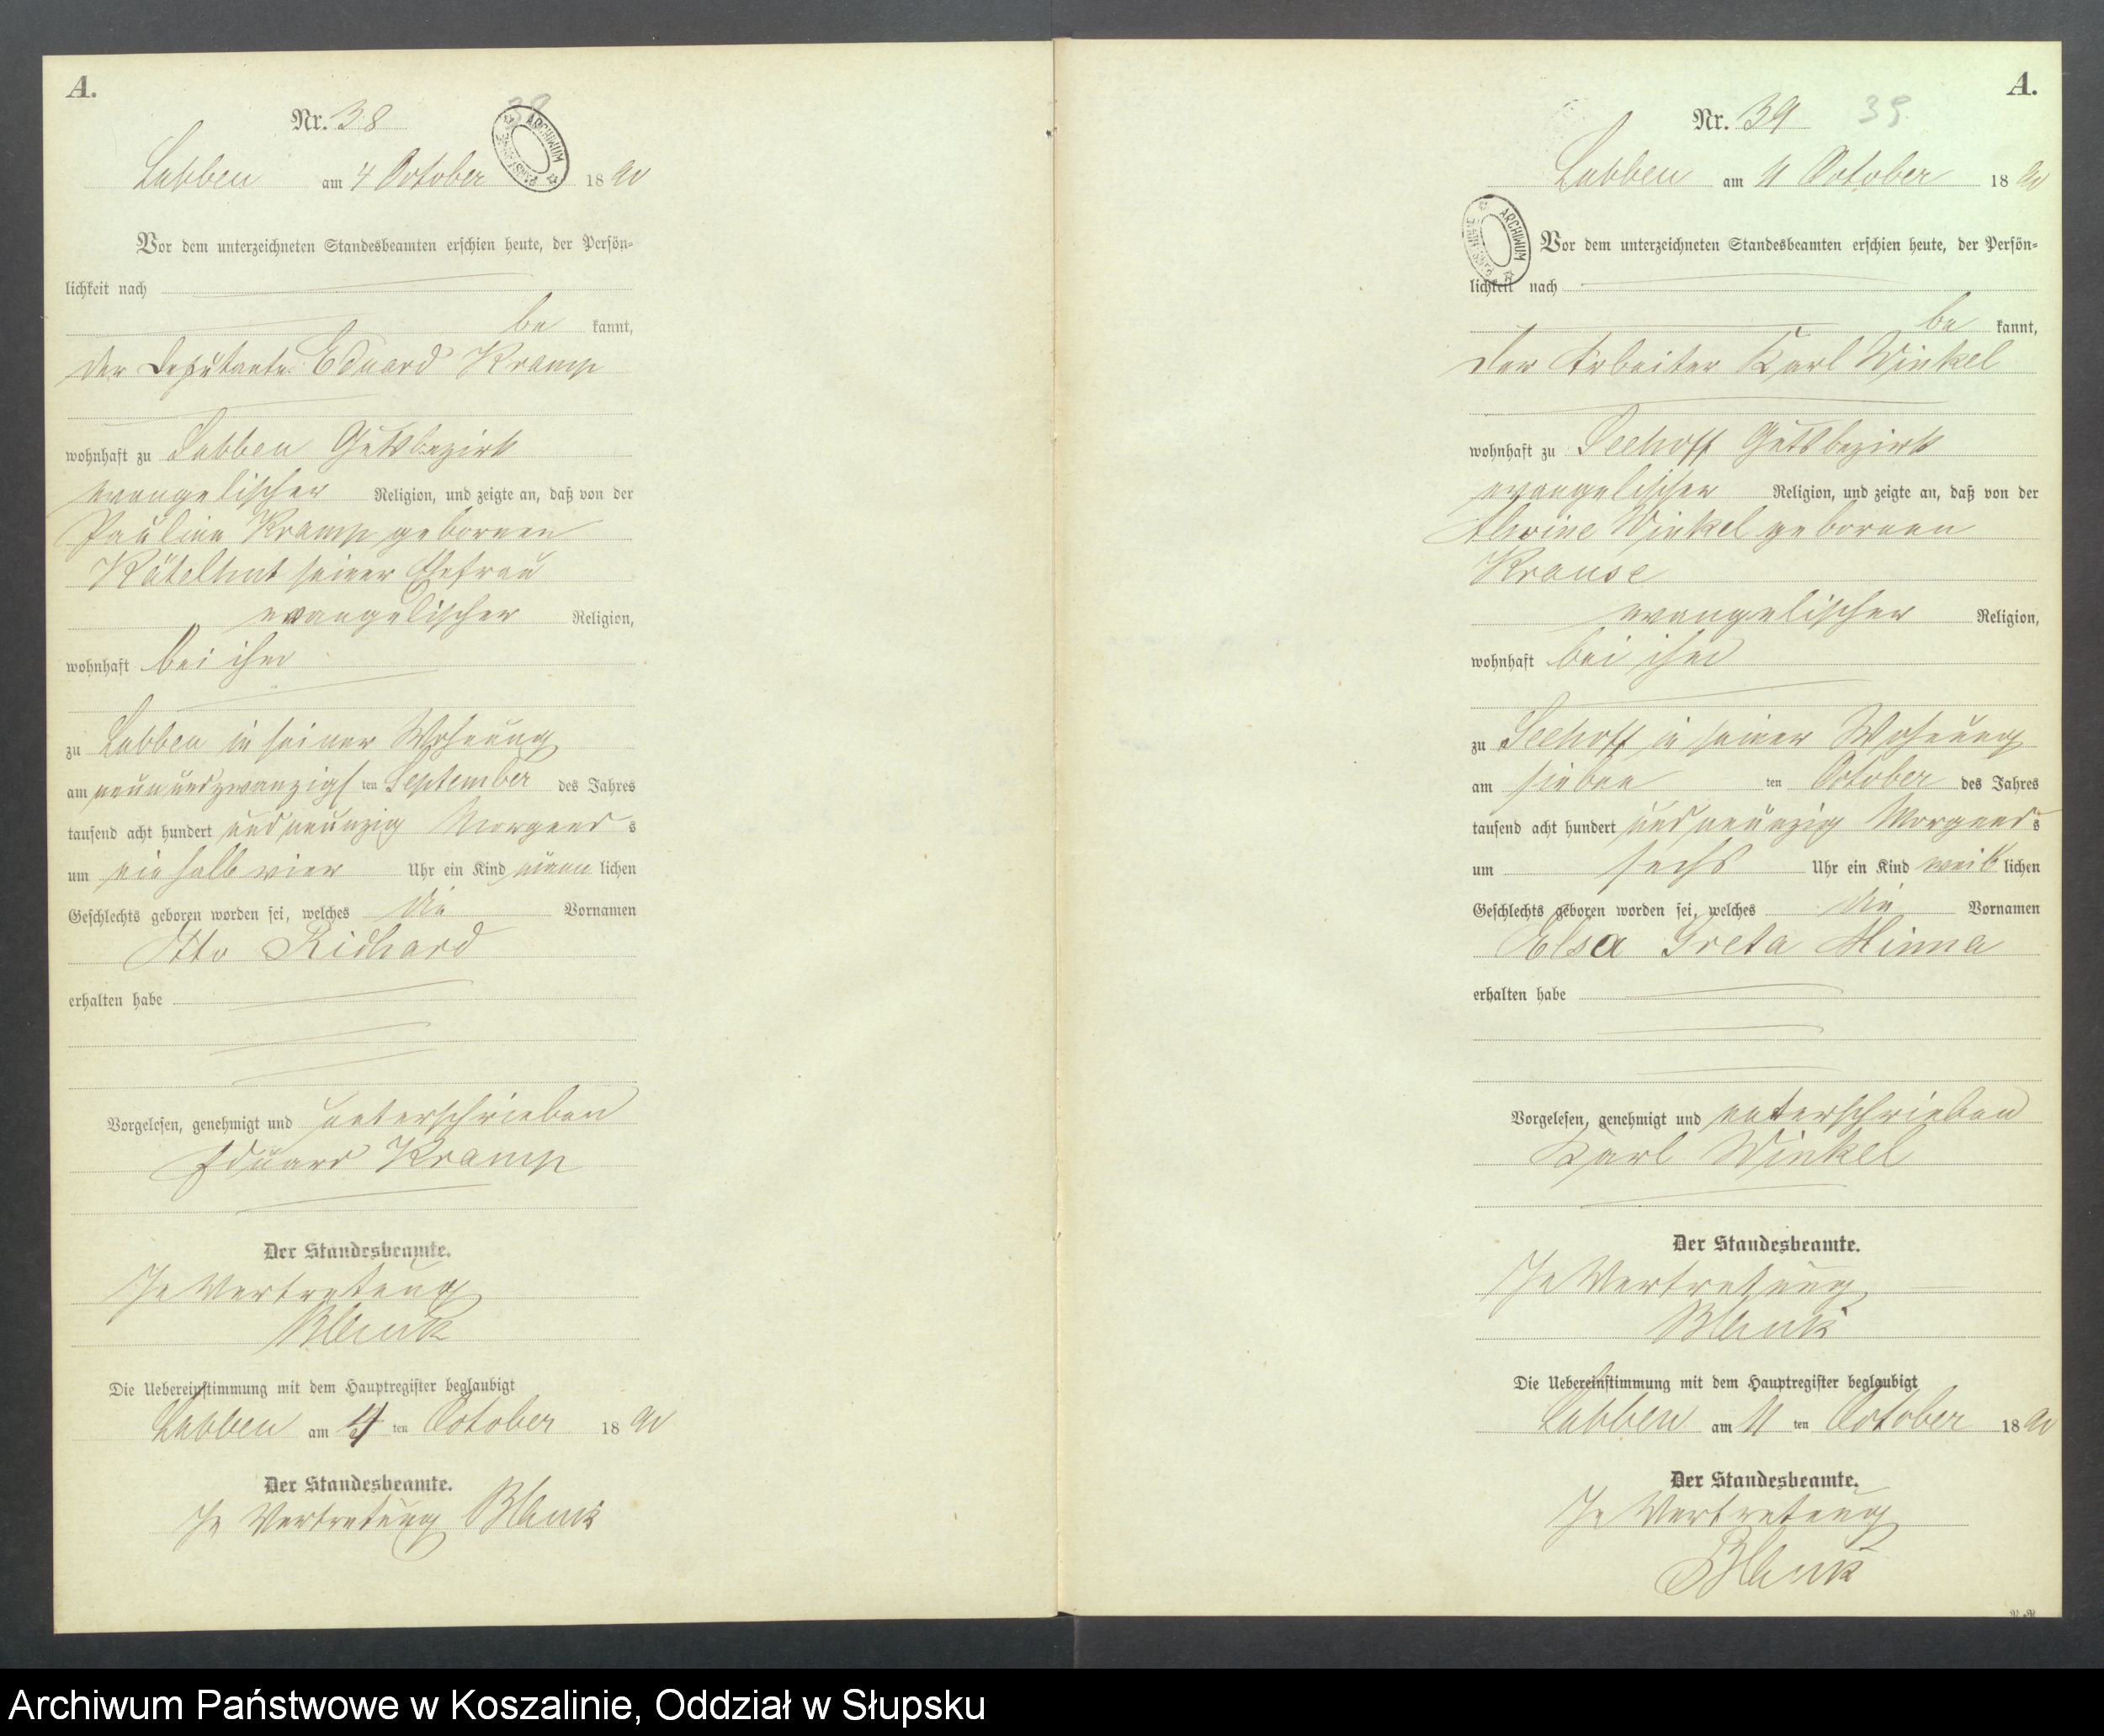 A.
Nr. 38
38
ARCHIWUM
Labben am 4 October 1890
Vor dem unterzeichneten Standesbeamten erschien heute, der Persön-
lichkeit nach
be kannt,
der Deputante Eduard Kramp
wohnhaft zu Labben Gutsbezirk
evangelischer Religion, und zeigte an, daß von der
Pauline Kramp geboren
seiner Ehefrau
evangelischer Religion,
wohnhaft bei ihm
zu Labben in seiner Wohnung
am neunundzwanzigs ten September des Jahres
tausend acht hundert und neunzig Morgens
um ein halb vier Uhr ein Kind männ lichen
Geschlechts geboren worden sei, welches die Vornamen
Otto Richard
erhalten habe
Vorgelesen, genehmigt und unterschrieben
Eduard Kramp
Der Standesbeamte.
In Vertretung
Blank
Die Uebereinstimmung mit dem Hauptregister beglaubigt
Labben am 4 ten October 1890
Der Standesbeamte.
In Vertretung Blank
A.
Nr. 39
39
Labben am 11 October 1890
ARCHIWUM
Vor dem unterzeichneten Standesbeamten erschien heute, der Persön-
lichkeit nach
be kannt,
der Arbeiter Karl Winkel
wohnhaft zu Seehoff Gutsbezirk
evangelischer Religion, und zeigte an, daß von der
Alwine Winkel geboren
Krause
evangelischer Religion,
wohnhaft bei ihm
zu Seehoff in seiner Wohnung
am sieben ten October des Jahres
tausend acht hundert und neunzig Morgens
um sechs Uhr ein Kind weib lichen
Geschlechts geboren worden sei, welches die Vornamen
Elsa Greta Minna
erhalten habe
Vorgelesen, genehmigt und unterschrieben
Karl Winkel
Der Standesbeamte.
In Vertretung
Blank
Die Uebereinstimmung mit dem Hauptregister beglaubigt
Labben am 11 ten October 1890
Der Standesbeamte.
In Vertretung
Blank
Archiwum Państwowe w Koszalinie, Oddział w Słupsku